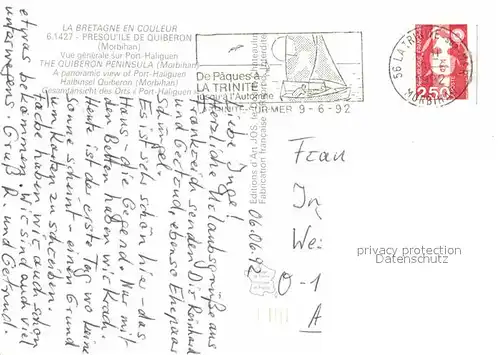 LA BRETAGNE EN COULEUR
6.1427 - PRESQU'ILE DE QUIBERON
(Morbihan)
Vue générale sur Port-Haliguen
THE QUIBERON PENINSULA (Morbihan)
A panoramic view of Port-Haliguen
Halbinsel Quiberon (Morbihan)
Gesamtansicht des Orts : Port-Haliguen
De Pâques à
LA TRINITÉ
jusqu'à l'Automne
LA TRINITE-SUR-MER 9-6-92
56 LA TRINITE-SUR-MER
MORBIHAN
2,50
Editions d'Art JOS
Fabrication française
06.06.92
Liebe Inge!
Herzliche Urlaubsgrüße aus
Frankreich senden Dir Reinhard
und Gertrud, ebenso Ehepaar
Schimpf.
Es ist sehr schön hier - das
Haus - die Gegend. Nur mit
den Betten haben wir Krach.
Heute ist der erste Tag wo keine
Sonne scheint - einen Grund
um Karten zu schreiben.
Farbe haben wir auch schon
etwas bekommen. Wir sind auch viel
unterwegs. Gruß R. und Gertrud.
Frau
In
We
O-1
A
privacy protection
Datenschutz